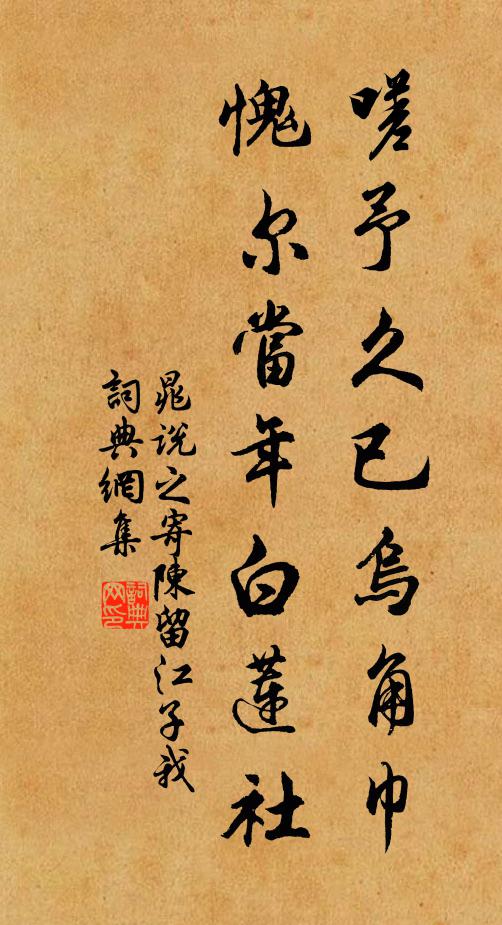 嗟予久已烏角巾
愧尔當年白蓮社
晁說之寄陳留江子我
詞典網集
詞典
网印